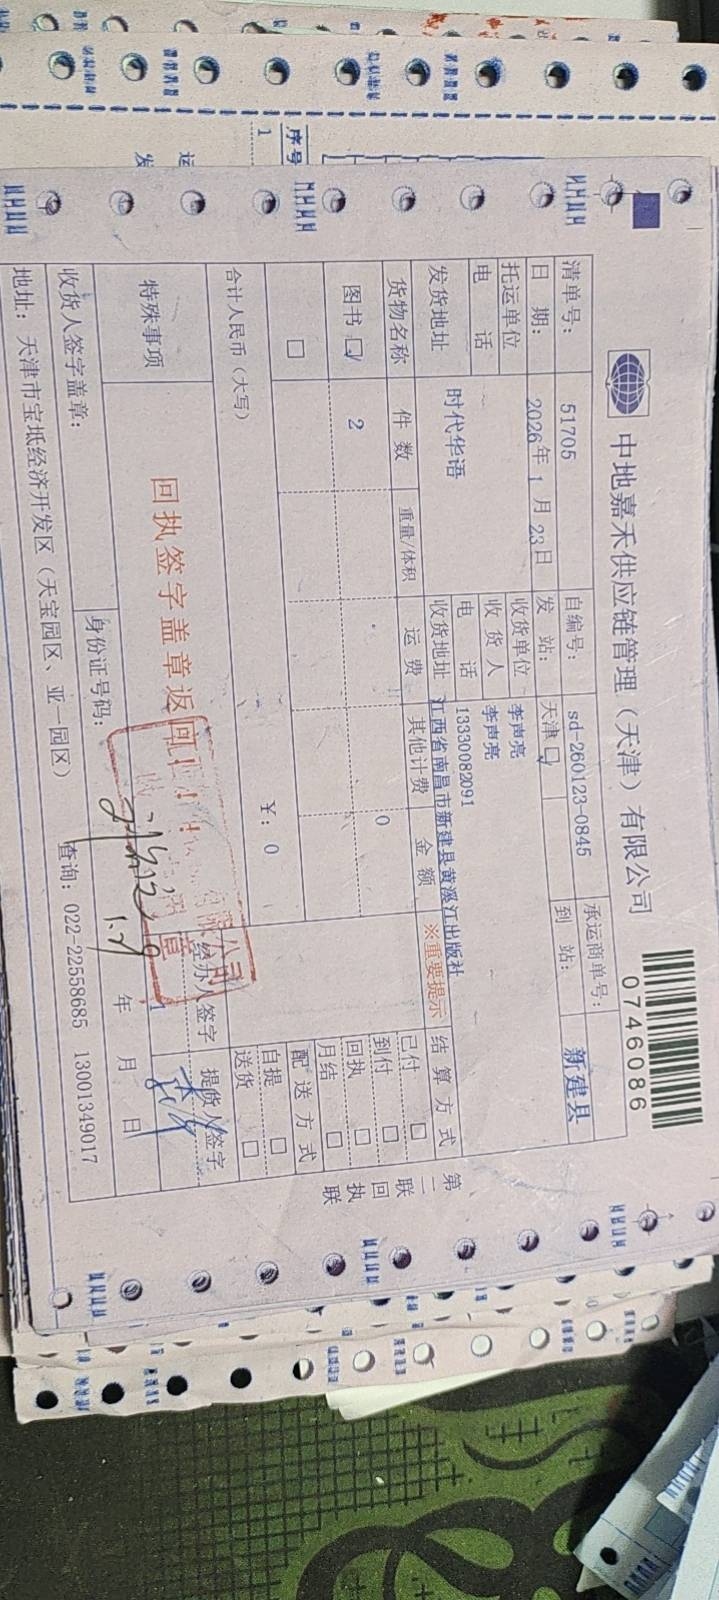 序号
1
运
发
中地嘉禾供应链管理（天津）有限公司
0746086
清单号： 51705 自编号： sd-260123-0845 承运商单号：
日 期： 2026年 1 月 23日 发 站： 天津 到 站： 新建县
托运单位 收货单位 李声亮
电 话 收 货 人 李声亮
电 话 13330082091
发货地址 时代华语 收货地址 江西省南昌市新建县黄溪江出版社
货物名称 件 数 重量/体积 运 费 其他计费 金 额 ※重要提示 结 算 方 式
图书 2 0
已付
到付
回执
月结
配 送 方 式
自提
送货
合计人民币（大写） ￥: 0
特殊事项 回执签字盖章返回
经办人签字 提货人签字
收货人签字盖章： 身份证号码： 年 月 日
1.29
地址： 天津市宝坻经济开发区（天宝园区、亚一园区） 查询: 022-22558685 13001349017
第二联 回执联